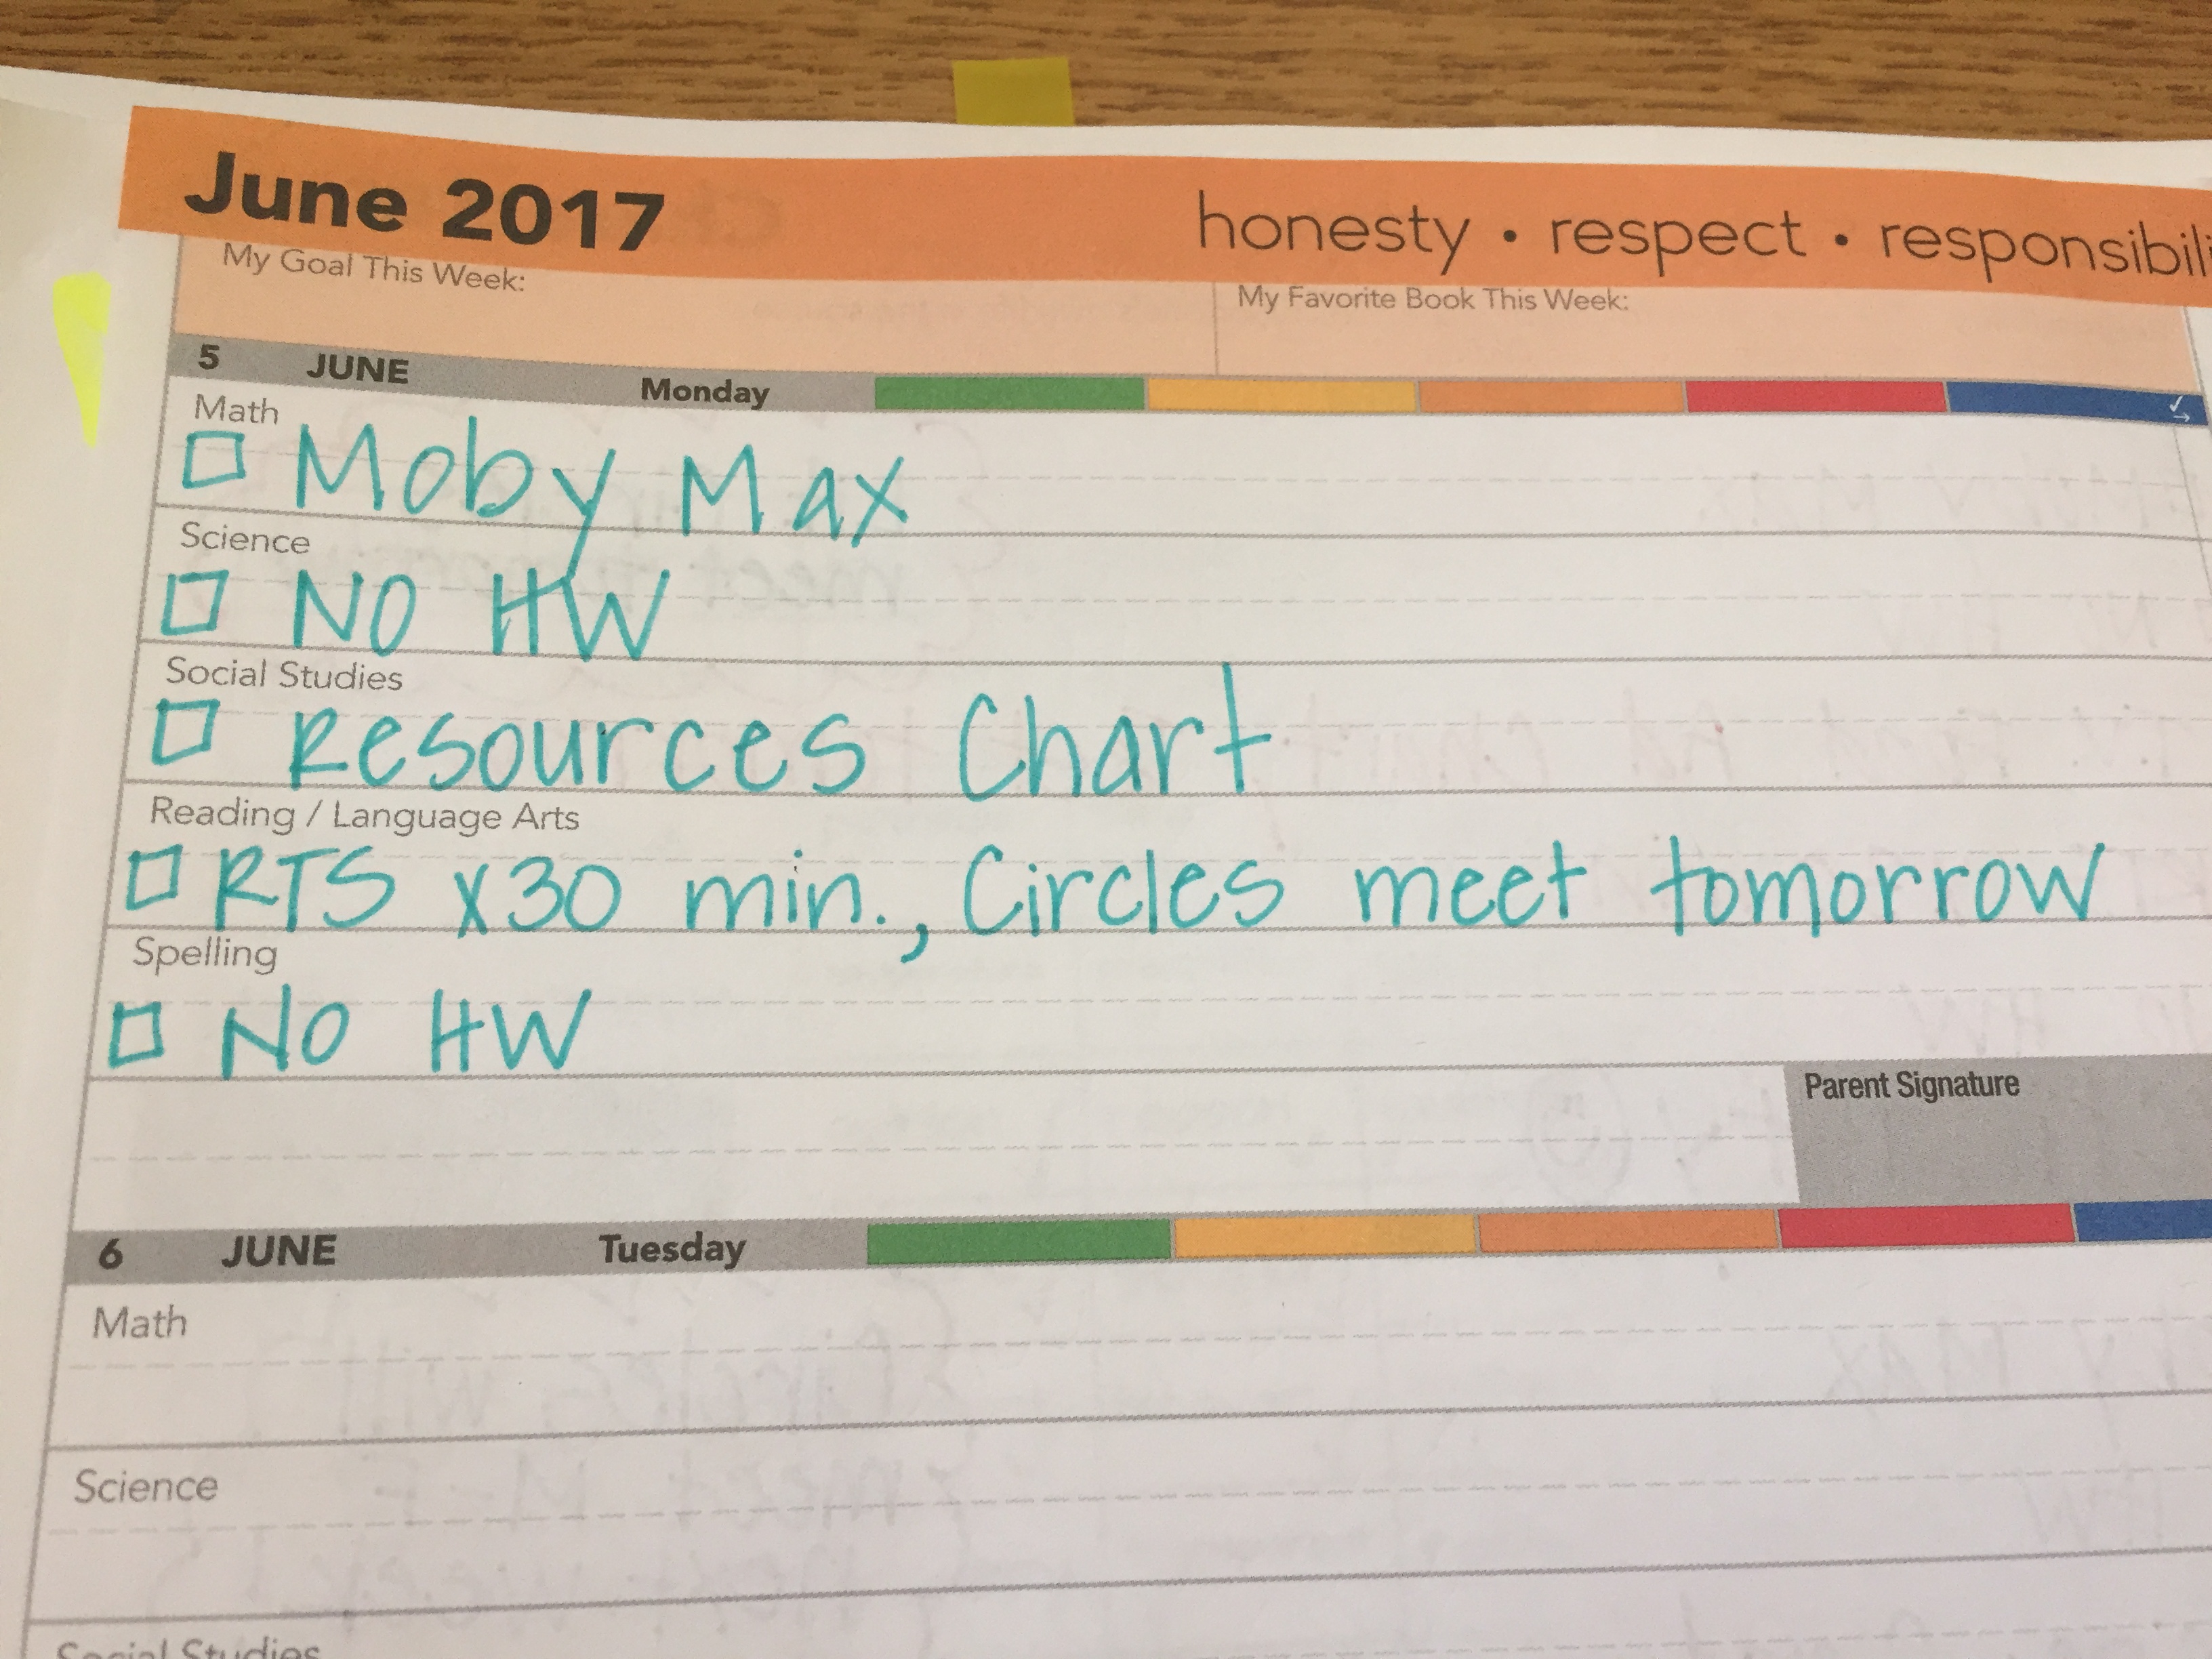 June 2017 honesty • respect • responsibili
My Goal This Week: My Favorite Book This Week:
5 JUNE Monday
Math
Moby Max
Science
NO HW
Social Studies
Resources Chart
Reading / Language Arts
RTS x30 min., Circles meet tomorrow
Spelling
No HW
Parent Signature
6 JUNE Tuesday
Math
Science
Social Studies